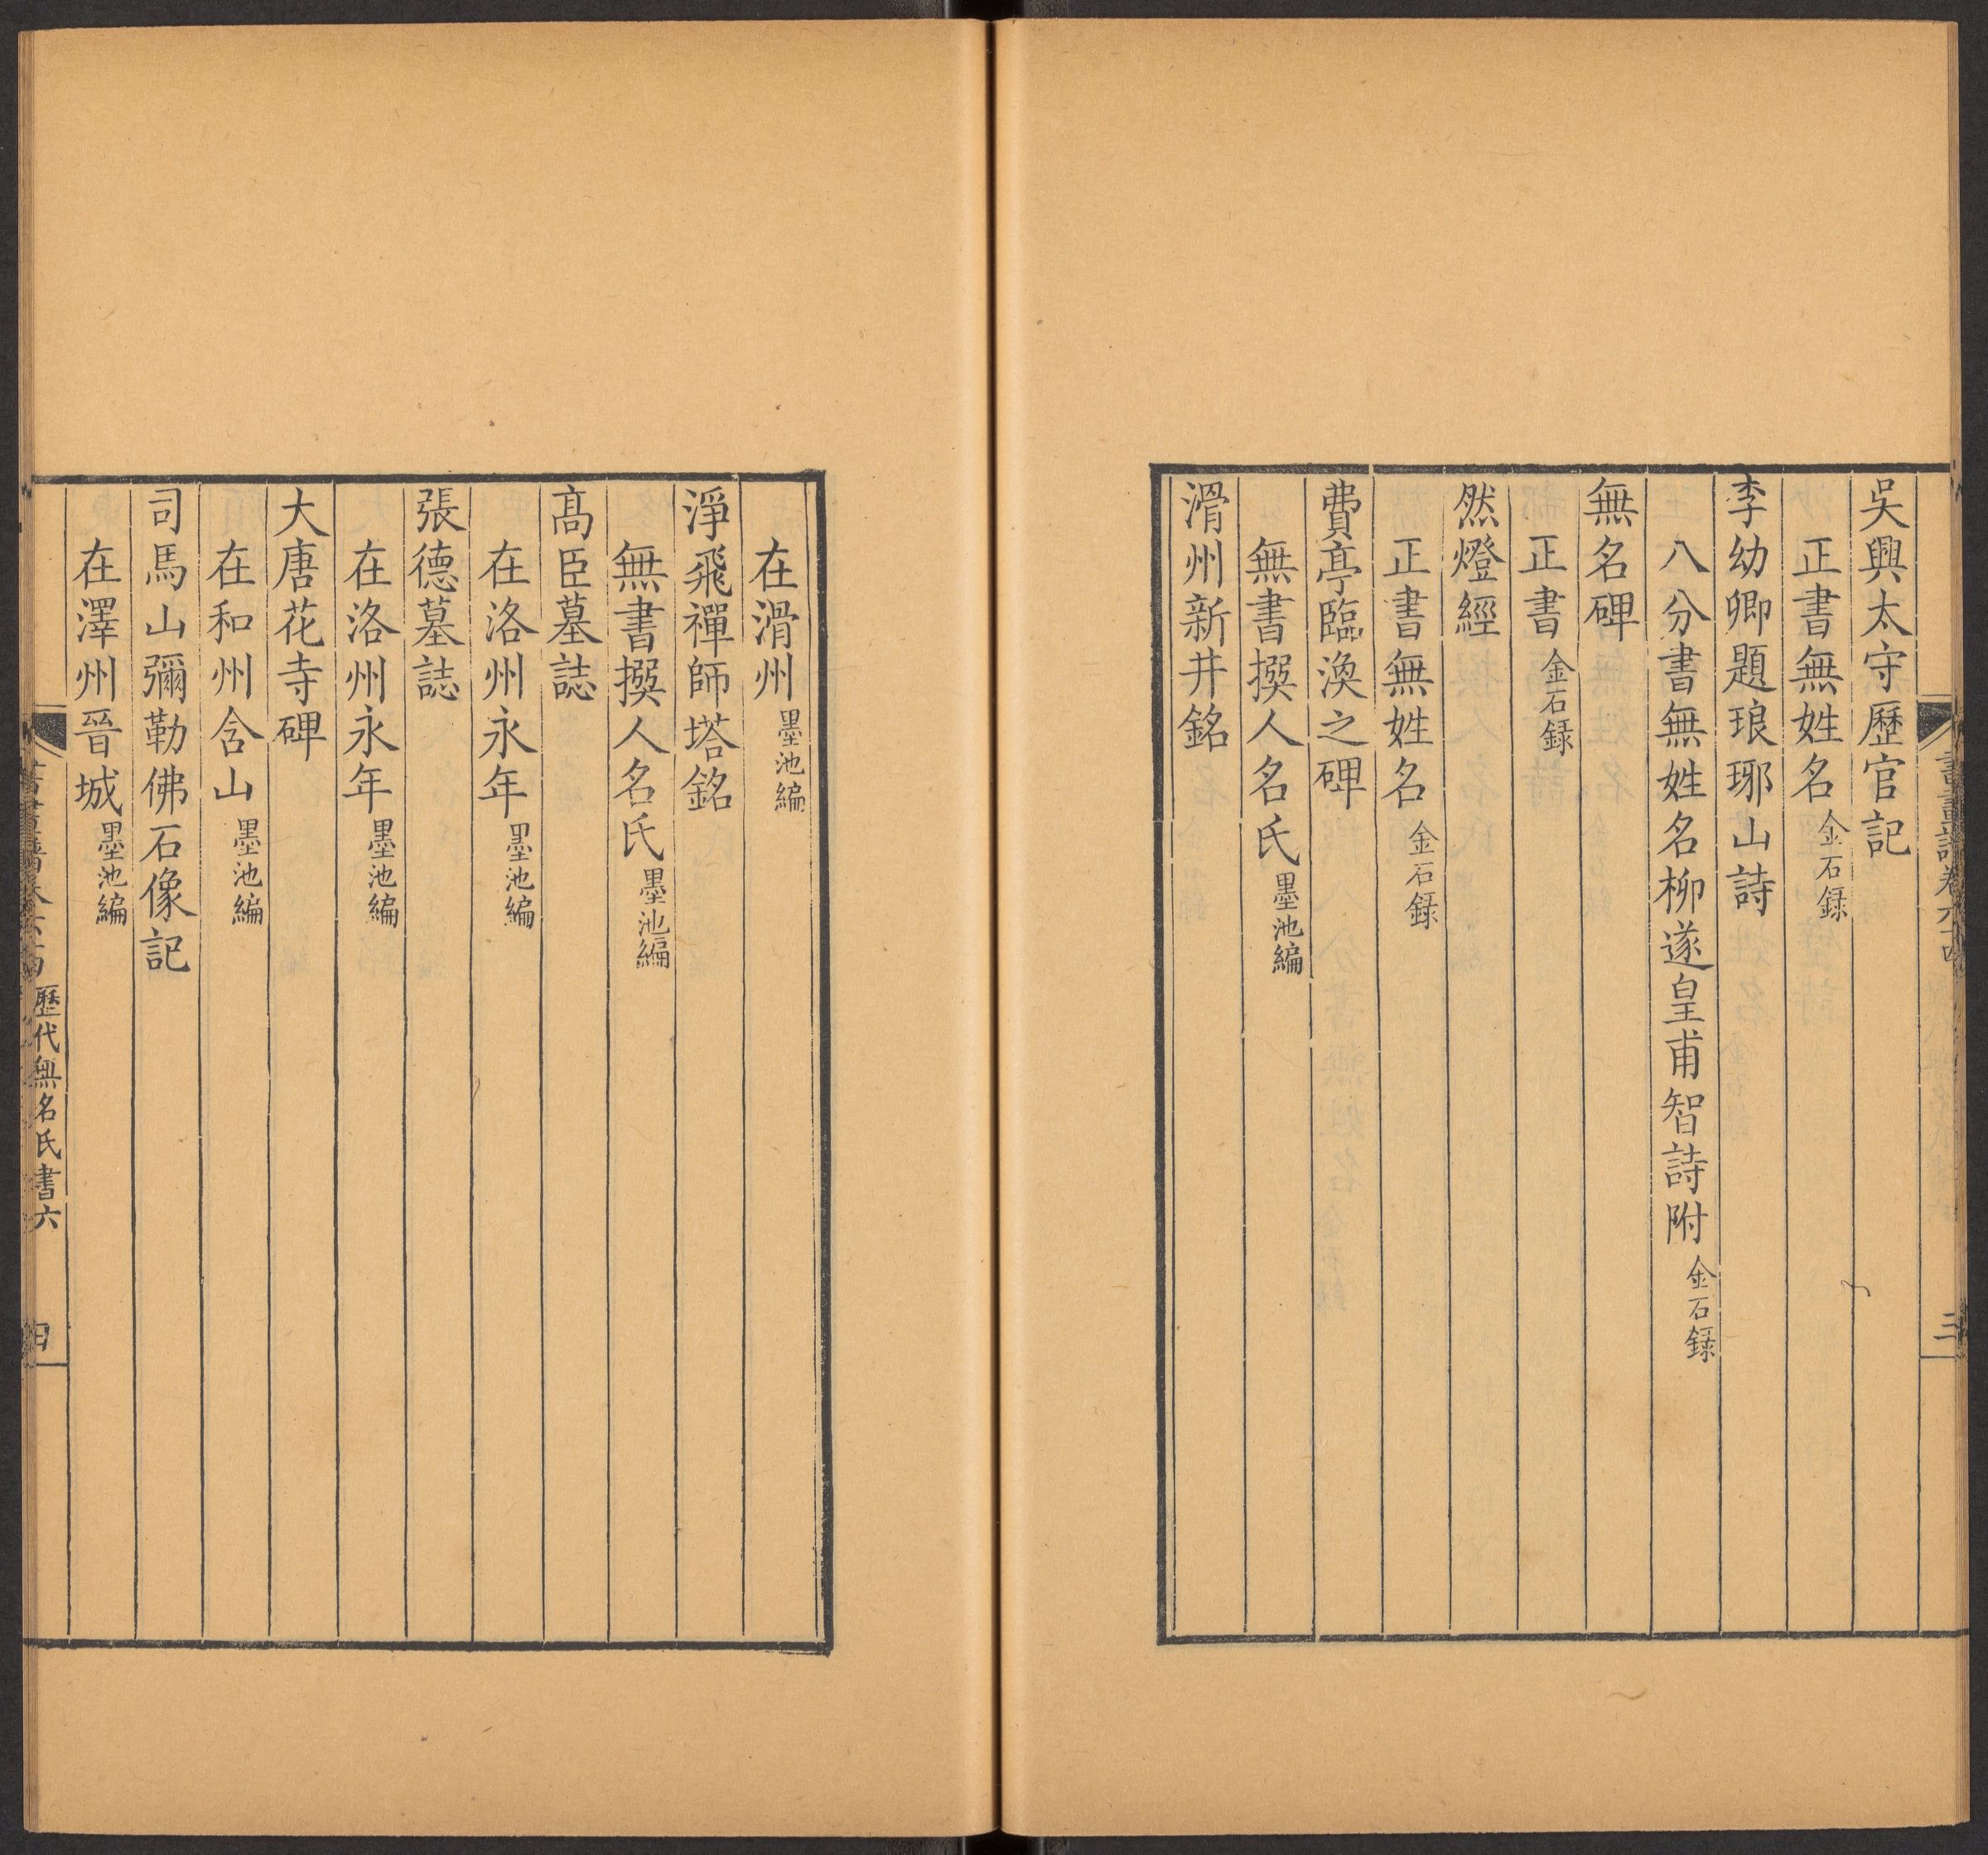 吳興太守歷官記
正書無姓名金石録
李幼卿題琅琊山詩
八分書無姓名柳遂皇甫智詩附金石録
無名碑
正書金石録
然燈經
正書無姓名金石録
費亭臨渙之碑
無書撰人名氏墨池編
滑州新井銘
在滑州墨池編
淨飛禪師塔銘
無書撰人名氏墨池編
髙臣墓誌
在洛州永年墨池編
張德墓誌
在洛州永年墨池編
大唐花寺碑
在和州含山墨池編
司馬山彌勒佛石像記
在澤州晉城墨池編
歷代無名氏書六